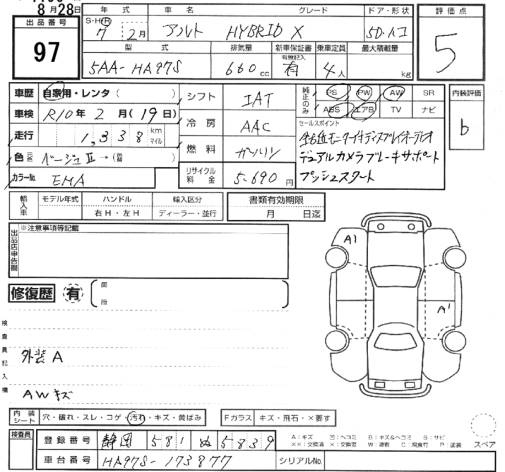 8月28日
出品番号
97
年式 車名 グレード ドア・形状 評価点
S・H・R
7 2月 アルト HYBRID X 5D-ハコ
5
型式 排気量 新車保証書 乗車定員 最大積載量
有無記入
5AA-HA97S 660cc 有 4人 kg
車歴 自家用・レンタ( )
シフト IAT
純正のみ
PS PW AW SR
ABS エアB TV ナビ
内装評価
b
車検 R10年2月(19日)
走行 1,338 km マイル
冷房 AAC
セールスポイント
全方位モニター付ディスプレイオーディオ
デュアルカメラブレーキサポート
プッシュスタート
色 ベージュⅡ→( )
燃料 ガソリン
カラーNo. EMA
リサイクル料金 5,690円
輸入車 モデル年式 ハンドル 輸入区分
右H・左H ディーラー・並行
書類有効期限
月 日迄
出品店申告欄
※注意事項等記載
A1
A1
修復歴 有
検査員記入欄
外装A
AWキズ
内装シート 穴・破れ・スレ・コゲ・汚れ・キズ・黄ばみ
Fガラス キズ・飛石・×要す
スペア
検査員
登録番号 静岡 581 ぬ 5839
車台番号 HA97S-173877
シリアルNo.